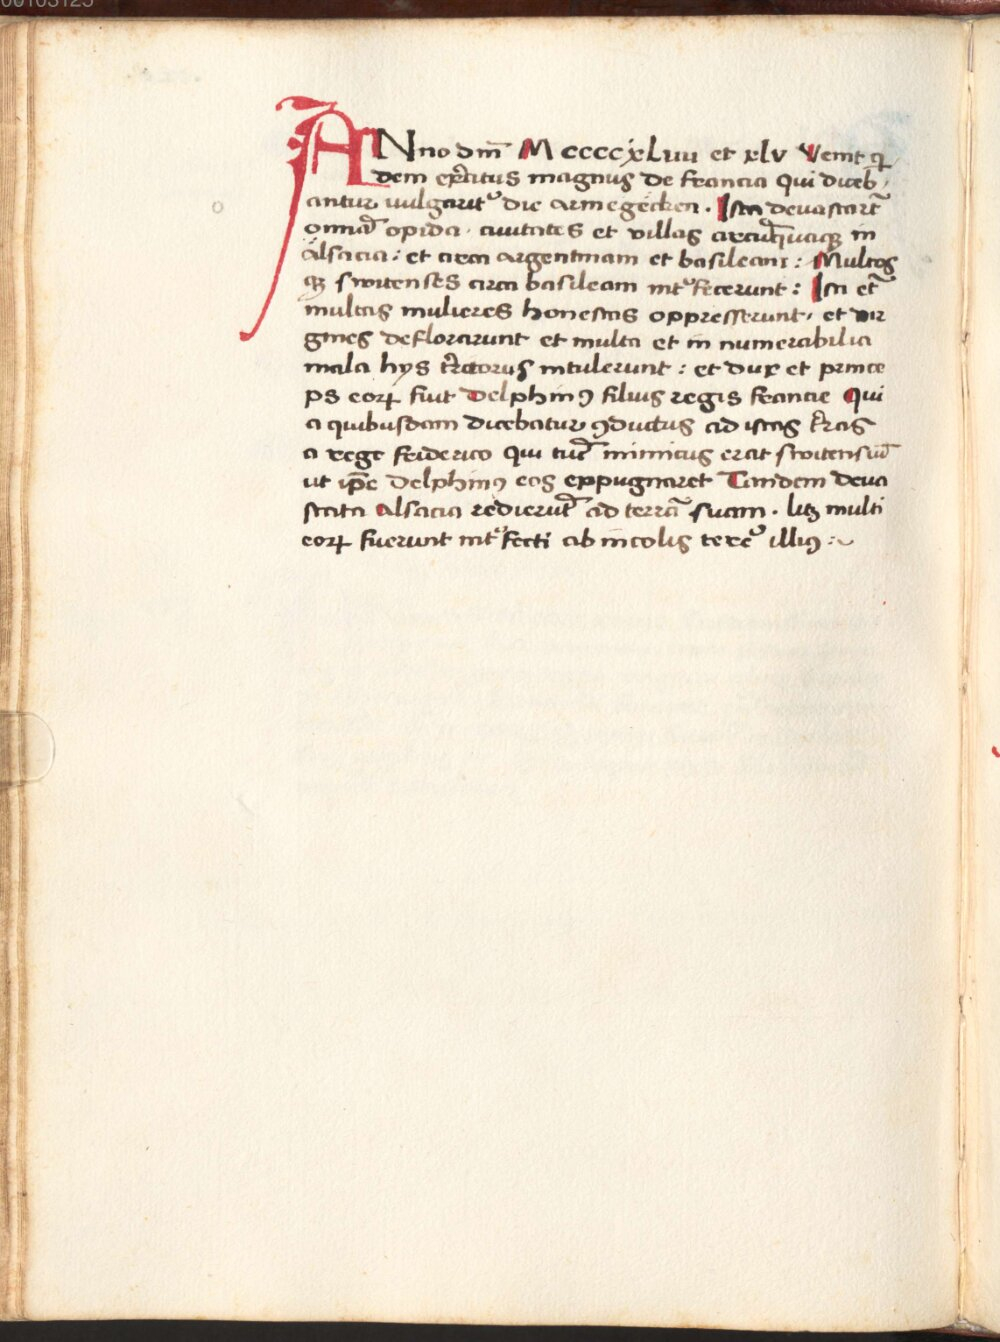 ANno dm̄ MccccxLiiii et xlv Venit q̄
dem ex̄citus magnus de francia qui diceb,
antur vulgarit᷑ die armegecken. Isti deuastart̄
omnia᷑ opida, ciuitates et villas circu᷑quaq̄ in
Alsacia: et circa argentinam et basileam: Multos
q̄ switenses circa basileam int᷑fecerunt: Isti et᷑
multas mulieres honestas oppresserunt, et vir
gines deflorarunt et multa et in numerabilia
mala hys t᷑ratorus intulerunt: et dux et prince
ps eoꝝ fuit Delphinꝰ filius regis francie Qui
a quibusdam dicebatur ꝯductus ad istas t᷑ras
a rege friderico qui tu᷑c inimicus erat switensiu᷑
ut ip̄e Delphinꝰ eos expugnaret Tandem deua
stata Alsacia redieru᷑t ad terra᷑ suam. licꝫ multi
eoꝝ fuerunt int᷑fecti ab incolis terre᷑ illiꝰ:~